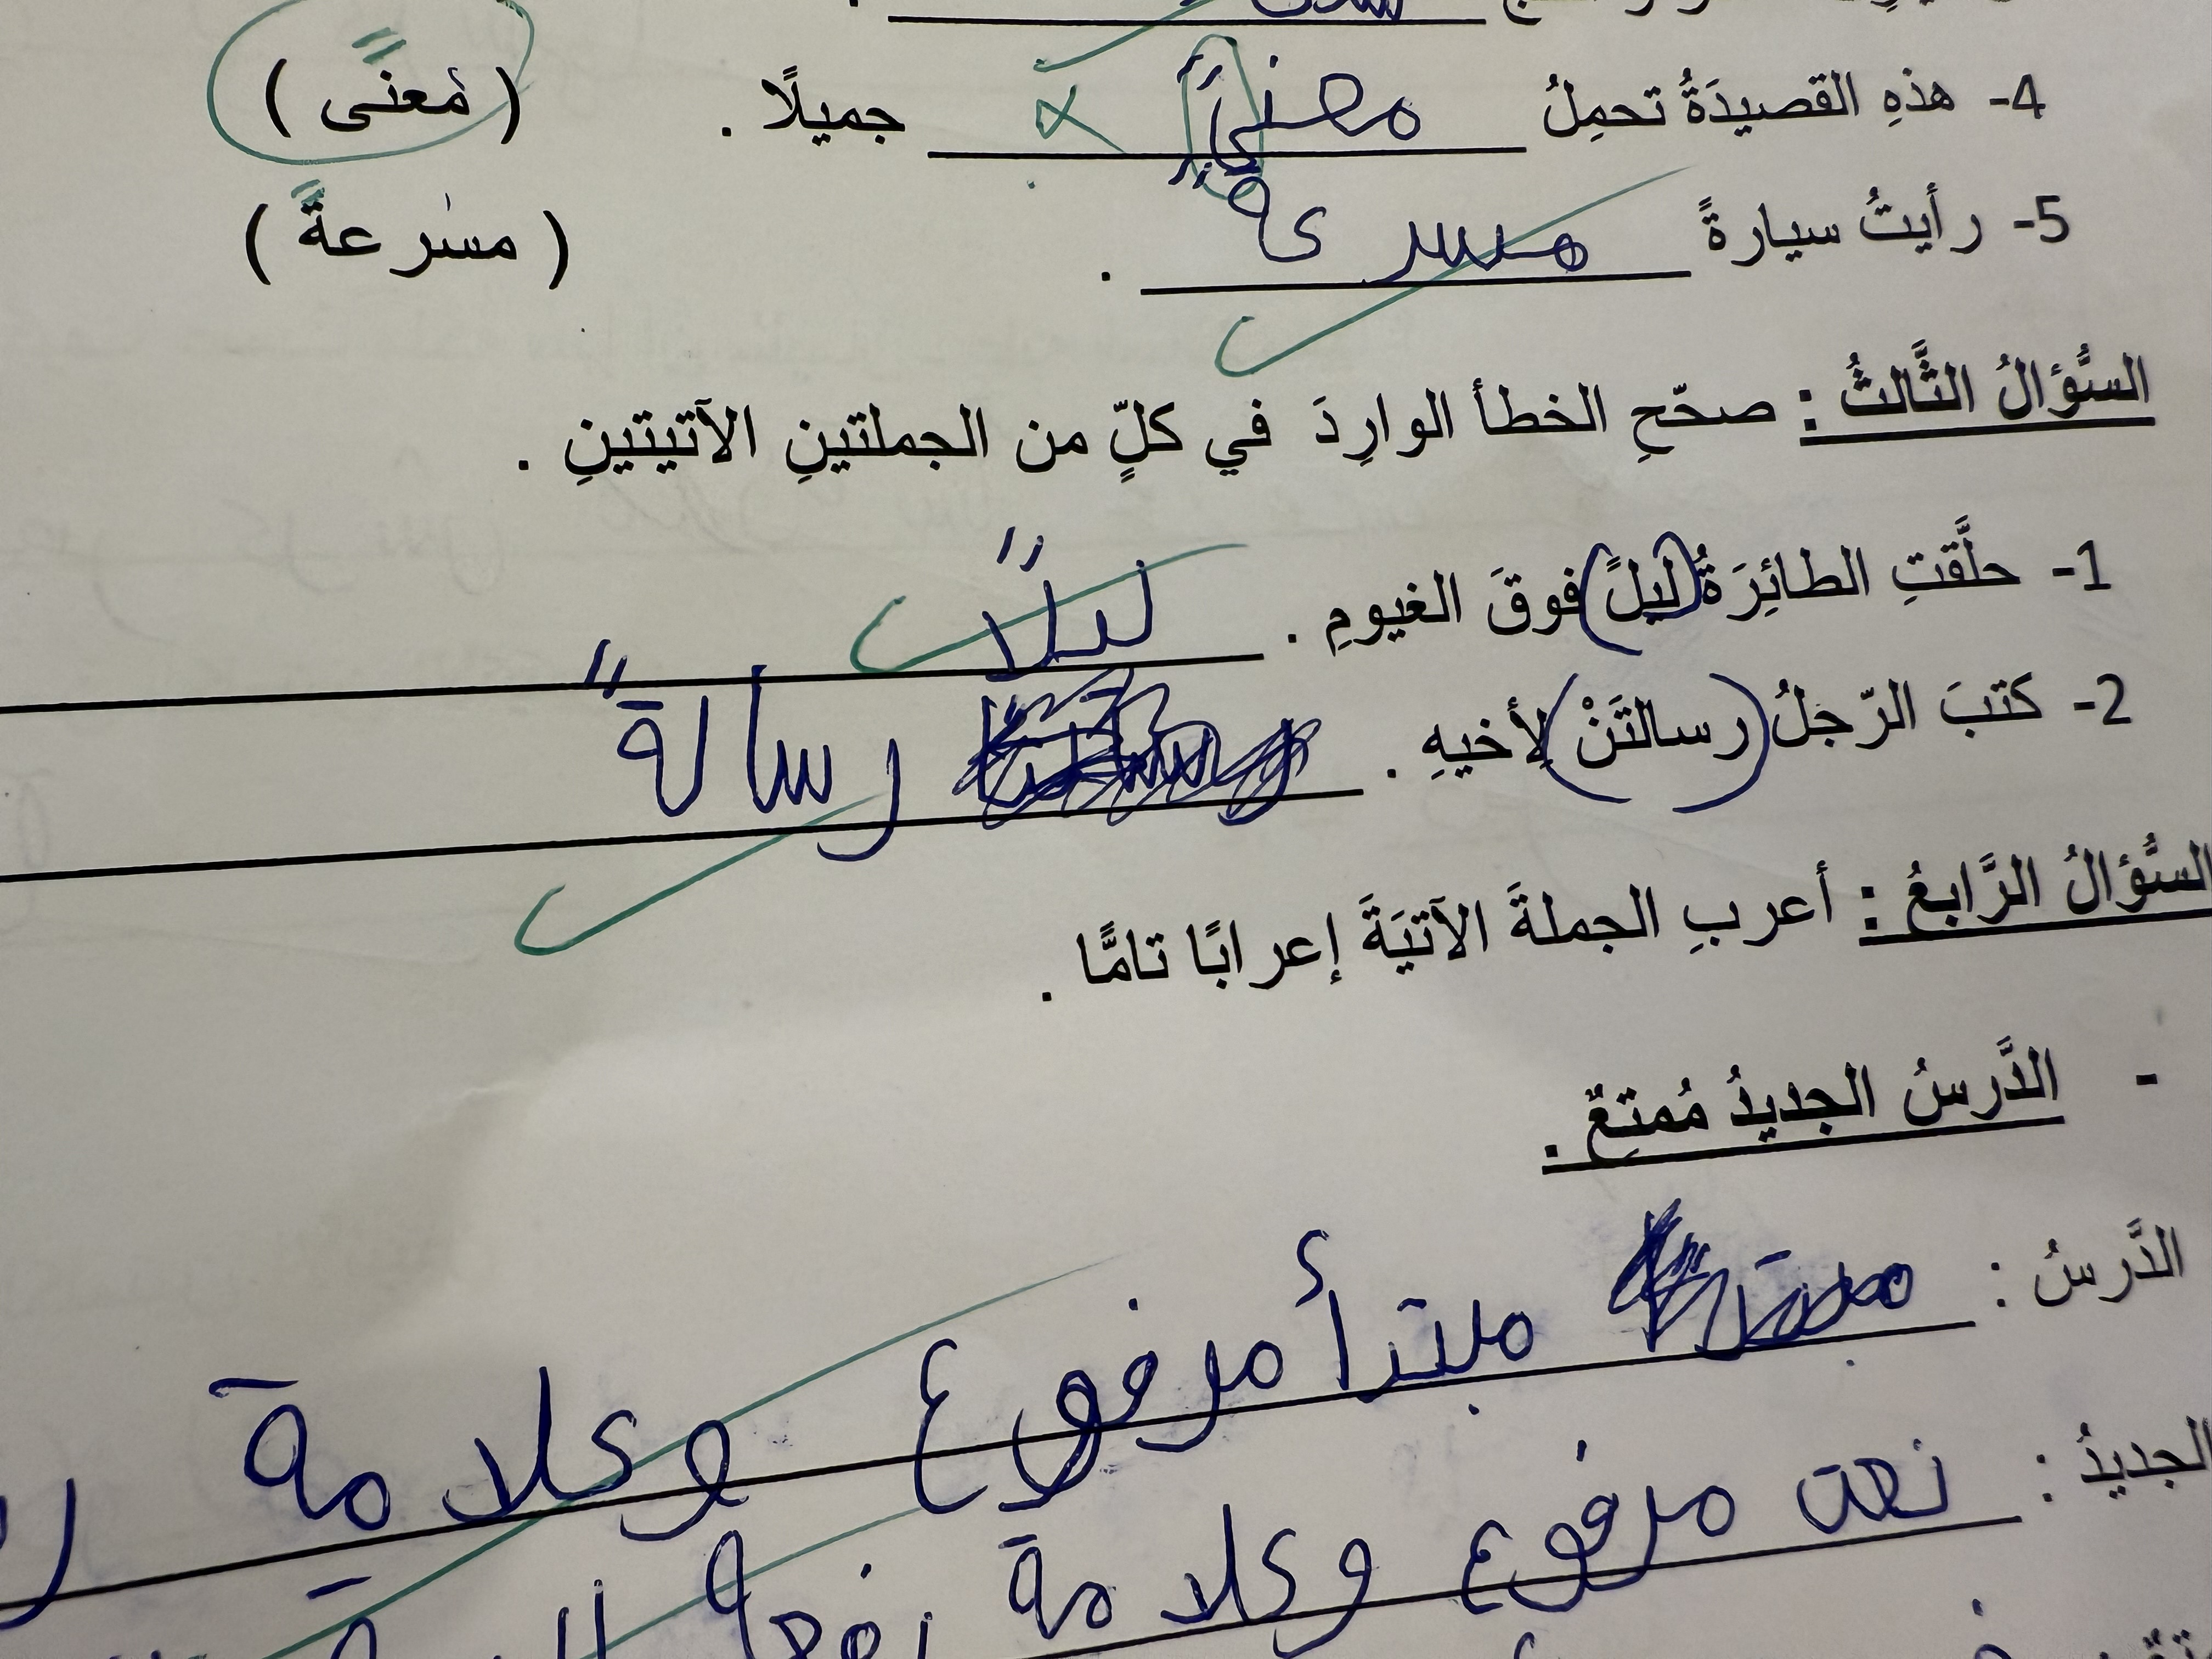 4- هذهِ القصيدَةُ تحمِلُ معنىً جميلًا . ( مَعنًى )
5- رأيتُ سيارةً مسرعةً . ( مسْرعةً )
السُّؤالُ الثَّالثُ : صحّحِ الخطأ الوارِدَ في كلٍّ من الجملتينِ الآتيتينِ .
1- حلَّقتِ الطائِرَةُ (ليلً) فوقَ الغيومِ . ليلًا
2- كتبَ الرّجلُ (رسالتَنْ) لِأخيهِ . رسالةً
السُّؤالُ الرَّابعُ : أعربِ الجملةَ الآتيَةَ إعرابًا تامًّا .
- الدَّرسُ الجديدُ مُمتعٌ .
الدَّرسُ : مبتدأ مرفوع وعلامة
الجديدُ : نعت مرفوع وعلامة رفعه